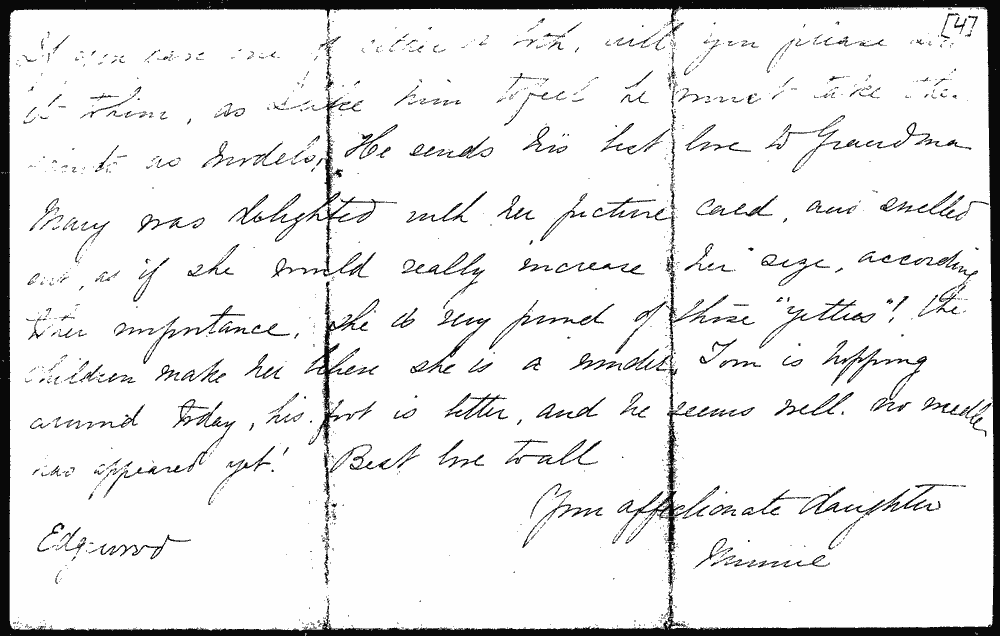 [4]
If you have one of either or both, will you please
it to him, as I like him to feel he must take
as models, He sends his best love to Grandma
Mary was delighted with her picture card, and swelled
out, as if she would really increase her size, according
to her importance. She is very proud of those "yetties"! The
children make her believe she is a wonder. Tom is hopping
around today, his foot is better, and he seems well. No
has appeared yet! Best love to all
Your affectionate daughter
Edgewood
Minnie